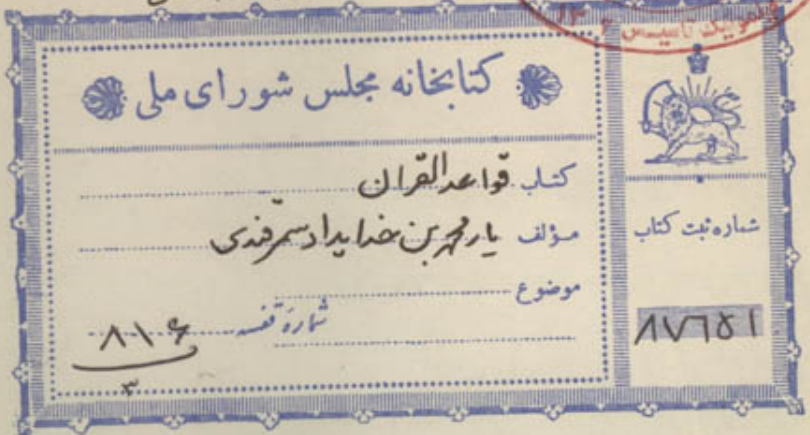 تاسیس ۱۳۰۲
کتابخانه مجلس شورای ملی
کتاب قواعد القرآن
مؤلف یارمحمد بن خدایداد سمرقندی
موضوع
شماره قفسه ۸۱۶
۳
شماره ثبت کتاب
۸۷۶۵۱